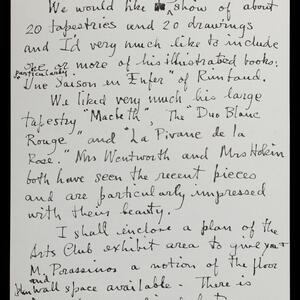 We would like a show of about
20 tapestries and 20 drawings
and I'd very much like to include
one or more of his illustrated books:
particularly
"Une Saison en Enfer" of Rimbaud.
We liked very much his large
tapestry "Macbeth", The "Duo Blanc
Rouge" and "La Pivane de la
Rose." Mrs Wentworth and Mrs Hokin
both have seen the recent pieces
and are particularly impressed
with their beauty.
I shall enclose a plan of the
Arts Club exhibit area to give you +
M. Prassinos a notion of the floor
and
wall space available. There is